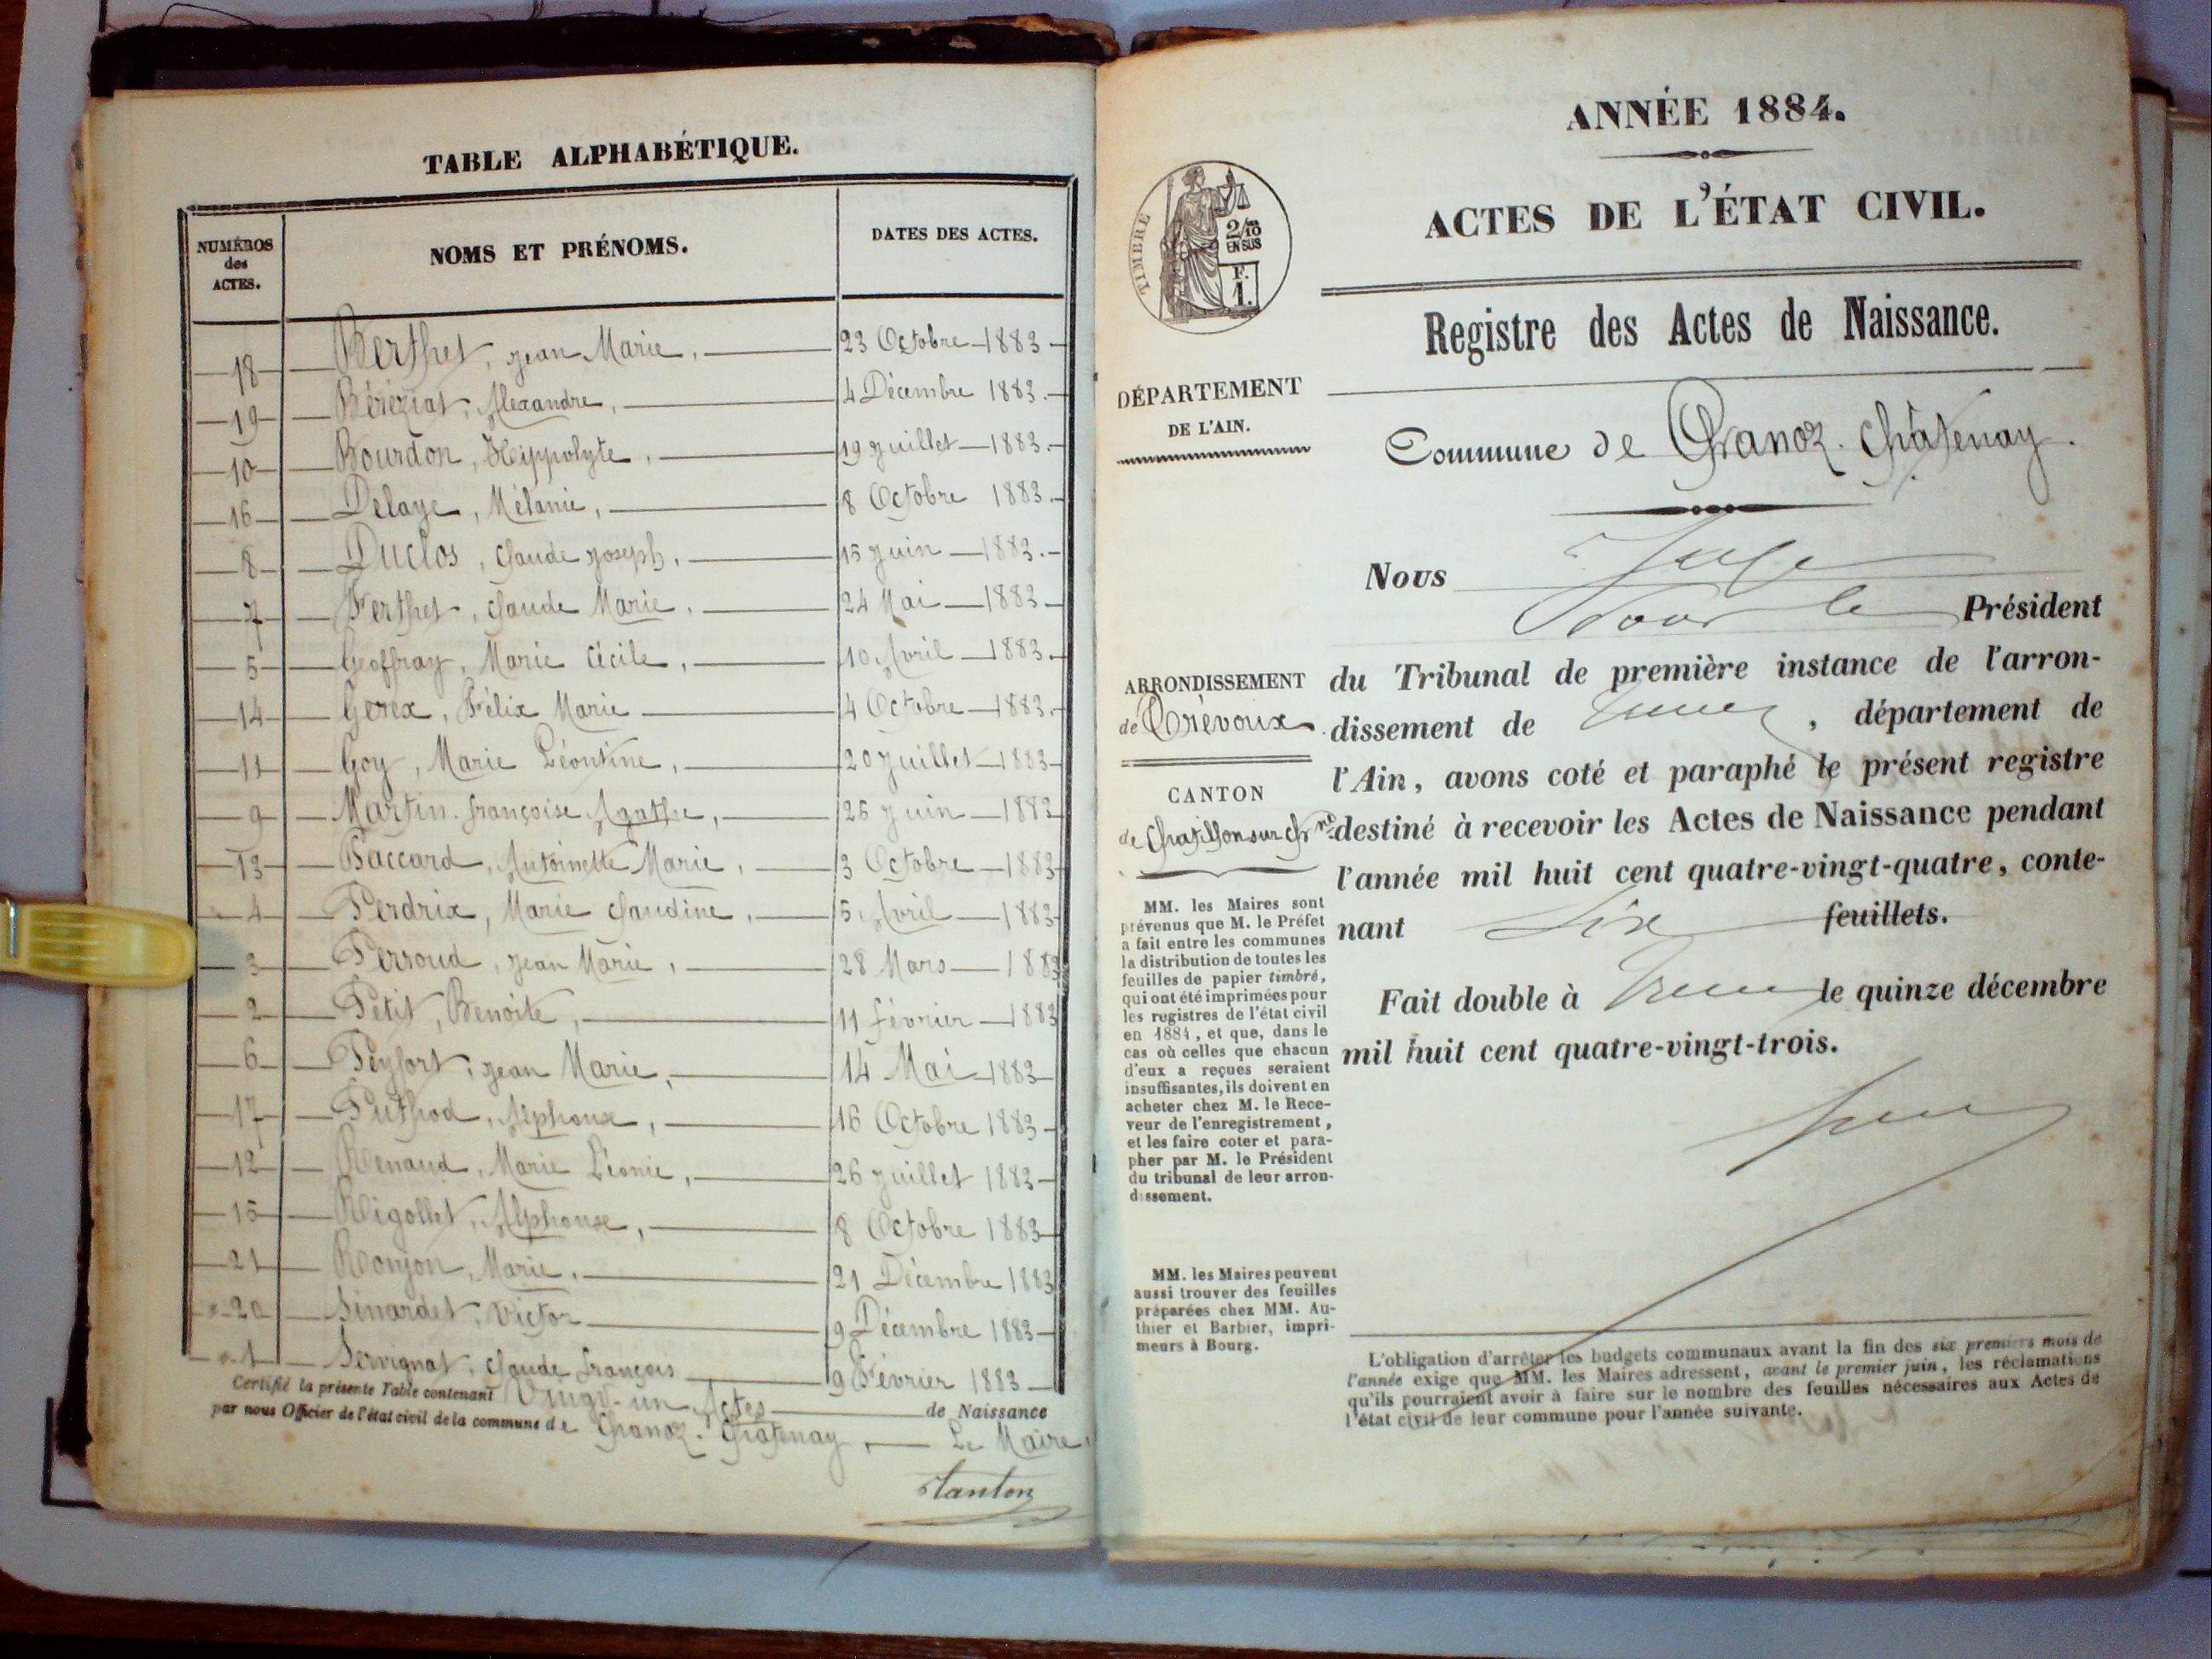 TABLE ALPHABÉTIQUE.
NUMÉROS des ACTES. NOMS ET PRÉNOMS. DATES DES ACTES.
18 Berthet, Jean Marie, 23 Octobre 1883
19 Béréziat, Alexandre, 4 Décembre 1883.
10 Bourdon, Hippolyte, 19 Juillet 1883.
16 Delaye, Mélanie, 8 Octobre 1883.
8 Duclos, Claude Joseph, 15 Juin 1883.
7 Ferthet, Claude Marie, 24 Mai 1883
5 Geoffray, Marie Cécile, 10 Avril 1883.
14 Gerex, Félix Marie 4 Octobre 1883.
11 Goy, Marie Léontine, 20 Juillet 1883
9 Martin. Françoise Agathe, 25 Juin 1883
13 Paccard, Antoinette Marie, 3 Octobre 1883
4 Perdrix, Marie Claudine, 5 Avril 1883
3 Perroud, Jean Marie, 28 Mars 1883
2 Petit, Benoite, 11 Février 1883
6 Peyfort, Jean Marie, 14 Mai 1883
17 Puthod, Alphonse, 16 Octobre 1883
12 Renaud, Marie Léonie, 26 Juillet 1883
15 Rigollet, Alphonse, 8 Octobre 1883
21 Ronjon, Marie. 21 Décembre 1883
20 Sinardet, Victor 9 Décembre 1883
1 Servignat, Claude François 9 Février 1883
Certifié la présente Table contenant Vingt-un Actes de Naissance
par nous Officier de l'état civil de la commune de Chanoz-Châtenay, Le Maire,
Tanton
ANNÉE 1884.
ACTES DE L'ÉTAT CIVIL.
TIMBRE
2/10
EN SUS
F.
1.
Registre des Actes de Naissance.
DÉPARTEMENT
DE L'AIN.
Commune de Chanoz. Châtenay.
Nous Juge
Pour le Président
ARRONDISSEMENT
de Trévoux
CANTON
de Chatillon sur Ch.ne
du Tribunal de première instance de l'arron-
dissement de , département de
l'Ain, avons coté et paraphé le présent registre
destiné à recevoir les Actes de Naissance pendant
l'année mil huit cent quatre-vingt-quatre, conte-
nant Six feuillets.
Fait double à le quinze décembre
mil huit cent quatre-vingt-trois.
MM. les Maires sont
prévenus que M. le Préfet
a fait entre les communes
la distribution de toutes les
feuilles de papier timbré,
qui ont été imprimées pour
les registres de l'état civil
en 1884, et que, dans le
cas où celles que chacun
d'eux a reçues seraient
insuffisantes, ils doivent en
acheter chez M. le Rece-
veur de l'enregistrement,
et les faire coter et para-
pher par M. le Président
du tribunal de leur arron-
dissement.
MM. les Maires peuvent
aussi trouver des feuilles
préparées chez MM. Au-
thier et Barbier, impri-
meurs à Bourg.
L'obligation d'arrêter les budgets communaux avant la fin des six premiers mois de
l'année exige que MM. les Maires adressent, avant le premier juin, les réclamations
qu'ils pourraient avoir à faire sur le nombre des feuilles nécessaires aux Actes de
l'état civil de leur commune pour l'année suivante.